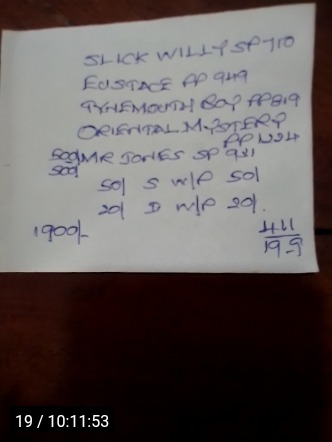 SLICK WILLY SP 710
EUSTACE PP 949
TYNEMOUTH BOY PP 819
ORIENTAL MYSTERY
PP 1224
500/ MR JONES SP 931
500/
50/ S W/P 50/
20/ D W/P 20/.
1900/- 411
19-9
19 / 10:11:53